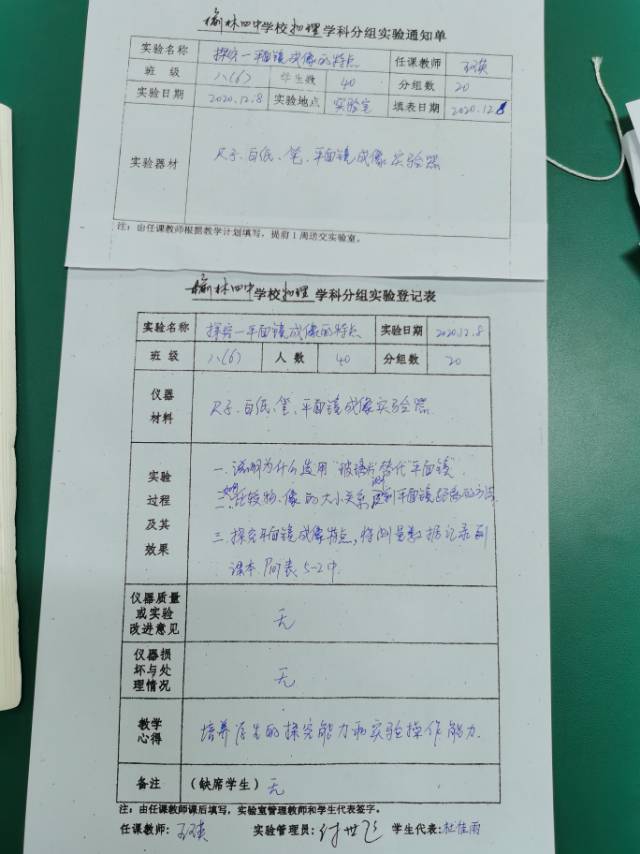 榆林四中学校物理学科分组实验通知单
实验名称 探究一平面镜成像的特点 任课教师
班级 八(6) 学生数 40 分组数 20
实验日期 2020.12.8 实验地点 实验室 填表日期 2020.12.8
实验器材 尺子、白纸、笔、平面镜成像实验器
注：由任课教师根据教学计划填写，提前1周送交实验室。
榆林四中学校物理学科分组实验登记表
实验名称 探究一平面镜成像的特点 实验日期 2020.12.8
班级 八(6) 人数 40 分组数 20
仪器材料 尺子、白纸、笔、平面镜成像实验器
实验过程及其效果 一.说明为什么选用"玻璃片"替代"平面镜".
二.比较物、像的大小关系 到平面镜距离的方法
三.探究平面镜成像特点,将测量数据记录到
课本 表5-2中.
仪器质量或实验改进意见 无
仪器损坏与处理情况 无
教学心得 培养学生的探究能力和实验操作能力.
备注 (缺席学生) 无
注：由任课教师课后填写，实验室管理教师和学生代表签字。
任课教师: 实验管理员:付世飞 学生代表:杜佳雨